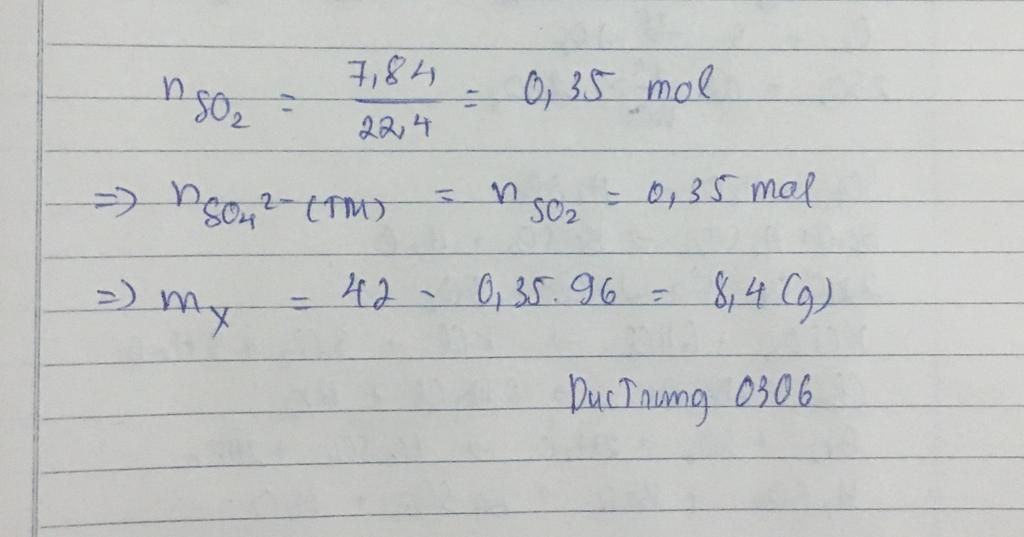 n SO₂ = 7,84 / 22,4 = 0,35 mol
=> n SO₄²⁻ (TM) = n SO₂ = 0,35 mol
=> m X = 42 - 0,35.96 = 8,4 (g)
DucTrung 0306